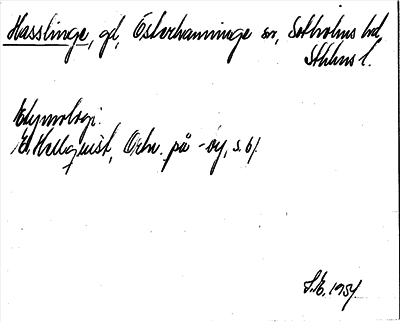 Hasslinge, gd, Österhaninge sn, Sotholms hd,
Sthlms l.
Etymologi:
E. Hellquist, Ortn. på -by, s. 61
S.E. 1954